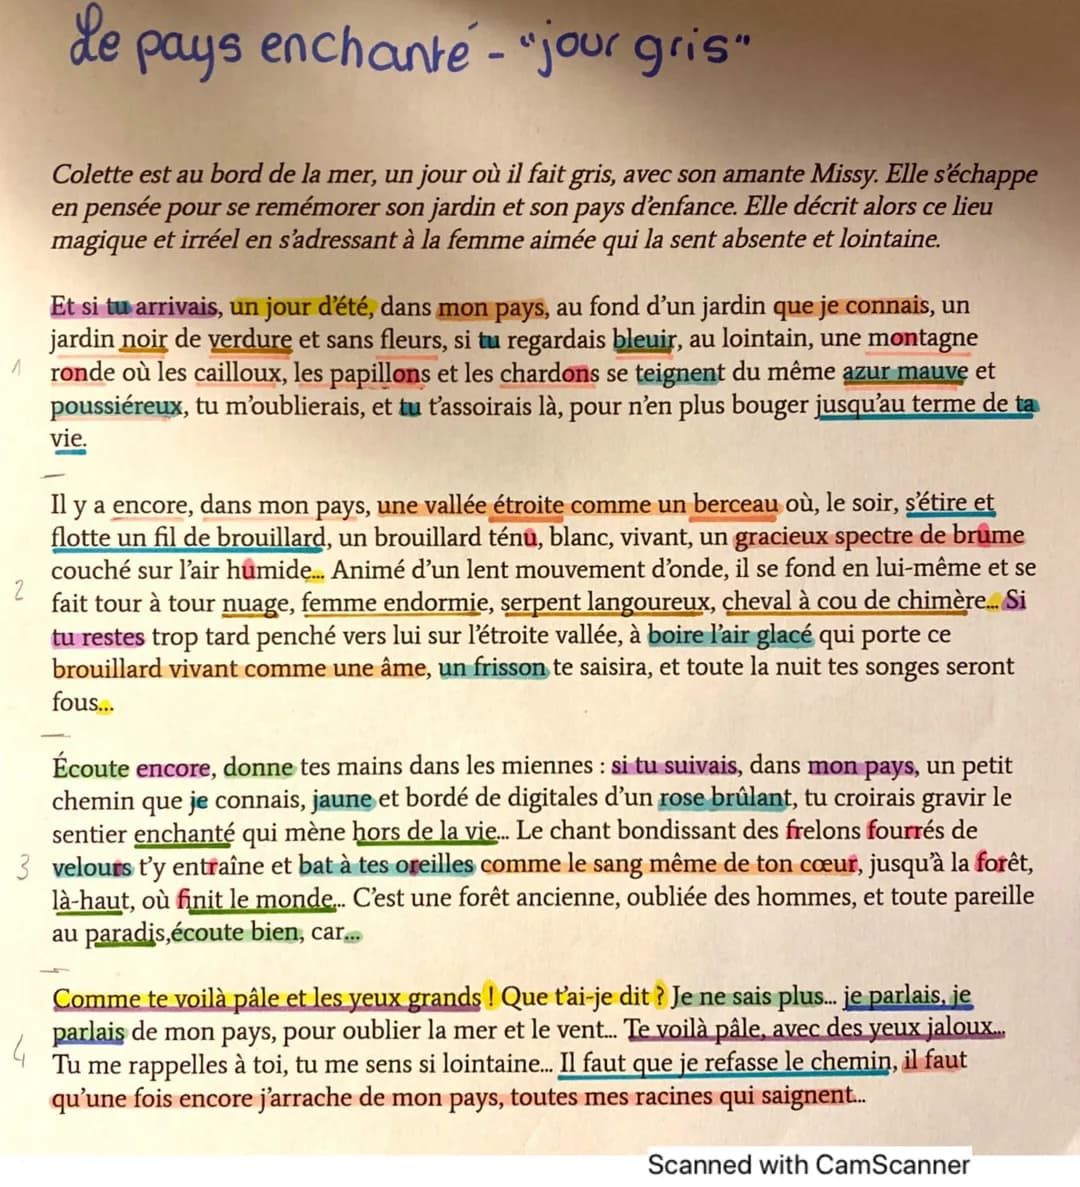 Le pays enchanté - "jour gris"
Colette est au bord de la mer, un jour où il fait gris, avec son amante Missy. Elle s'échappe
en pensée pour se remémorer son jardin et son pays d'enfance. Elle décrit alors ce lieu
magique et irréel en s'adressant à la femme aimée qui la sent absente et lointaine.
Et si tu arrivais, un jour d'été, dans mon pays, au fond d'un jardin que je connais, un
jardin noir de verdure et sans fleurs, si tu regardais bleuir, au lointain, une montagne
1 ronde où les cailloux, les papillons et les chardons se teignent du même azur mauve et
poussiéreux, tu m'oublierais, et tu t'assoirais là, pour n'en plus bouger jusqu'au terme de ta
vie.
Il y a encore, dans mon pays, une vallée étroite comme un berceau où, le soir, s'étire et
flotte un fil de brouillard, un brouillard ténu, blanc, vivant, un gracieux spectre de brume
couché sur l'air humide... Animé d'un lent mouvement d'onde, il se fond en lui-même et se
2 fait tour à tour nuage, femme endormie, serpent langoureux, cheval à cou de chimère... Si
tu restes trop tard penché vers lui sur l'étroite vallée, à boire l'air glacé qui porte ce
brouillard vivant comme une âme, un frisson te saisira, et toute la nuit tes songes seront
fous...
Écoute encore, donne tes mains dans les miennes : si tu suivais, dans mon pays, un petit
chemin que je connais, jaune et bordé de digitales d'un rose brûlant, tu croirais gravir le
sentier enchanté qui mène hors de la vie... Le chant bondissant des frelons fourrés de
3 velours t'y entraîne et bat à tes oreilles comme le sang même de ton cœur, jusqu'à la forêt,
là-haut, où finit le monde... C'est une forêt ancienne, oubliée des hommes, et toute pareille
au paradis,écoute bien, car...
Comme te voilà pâle et les yeux grands ! Que t'ai-je dit ? Je ne sais plus... je parlais, je
parlais de mon pays, pour oublier la mer et le vent... Te voilà pâle, avec des yeux jaloux...
4 Tu me rappelles à toi, tu me sens si lointaine... Il faut que je refasse le chemin, il faut
qu'une fois encore j'arrache de mon pays, toutes mes racines qui saignent...
Scanned with CamScanner